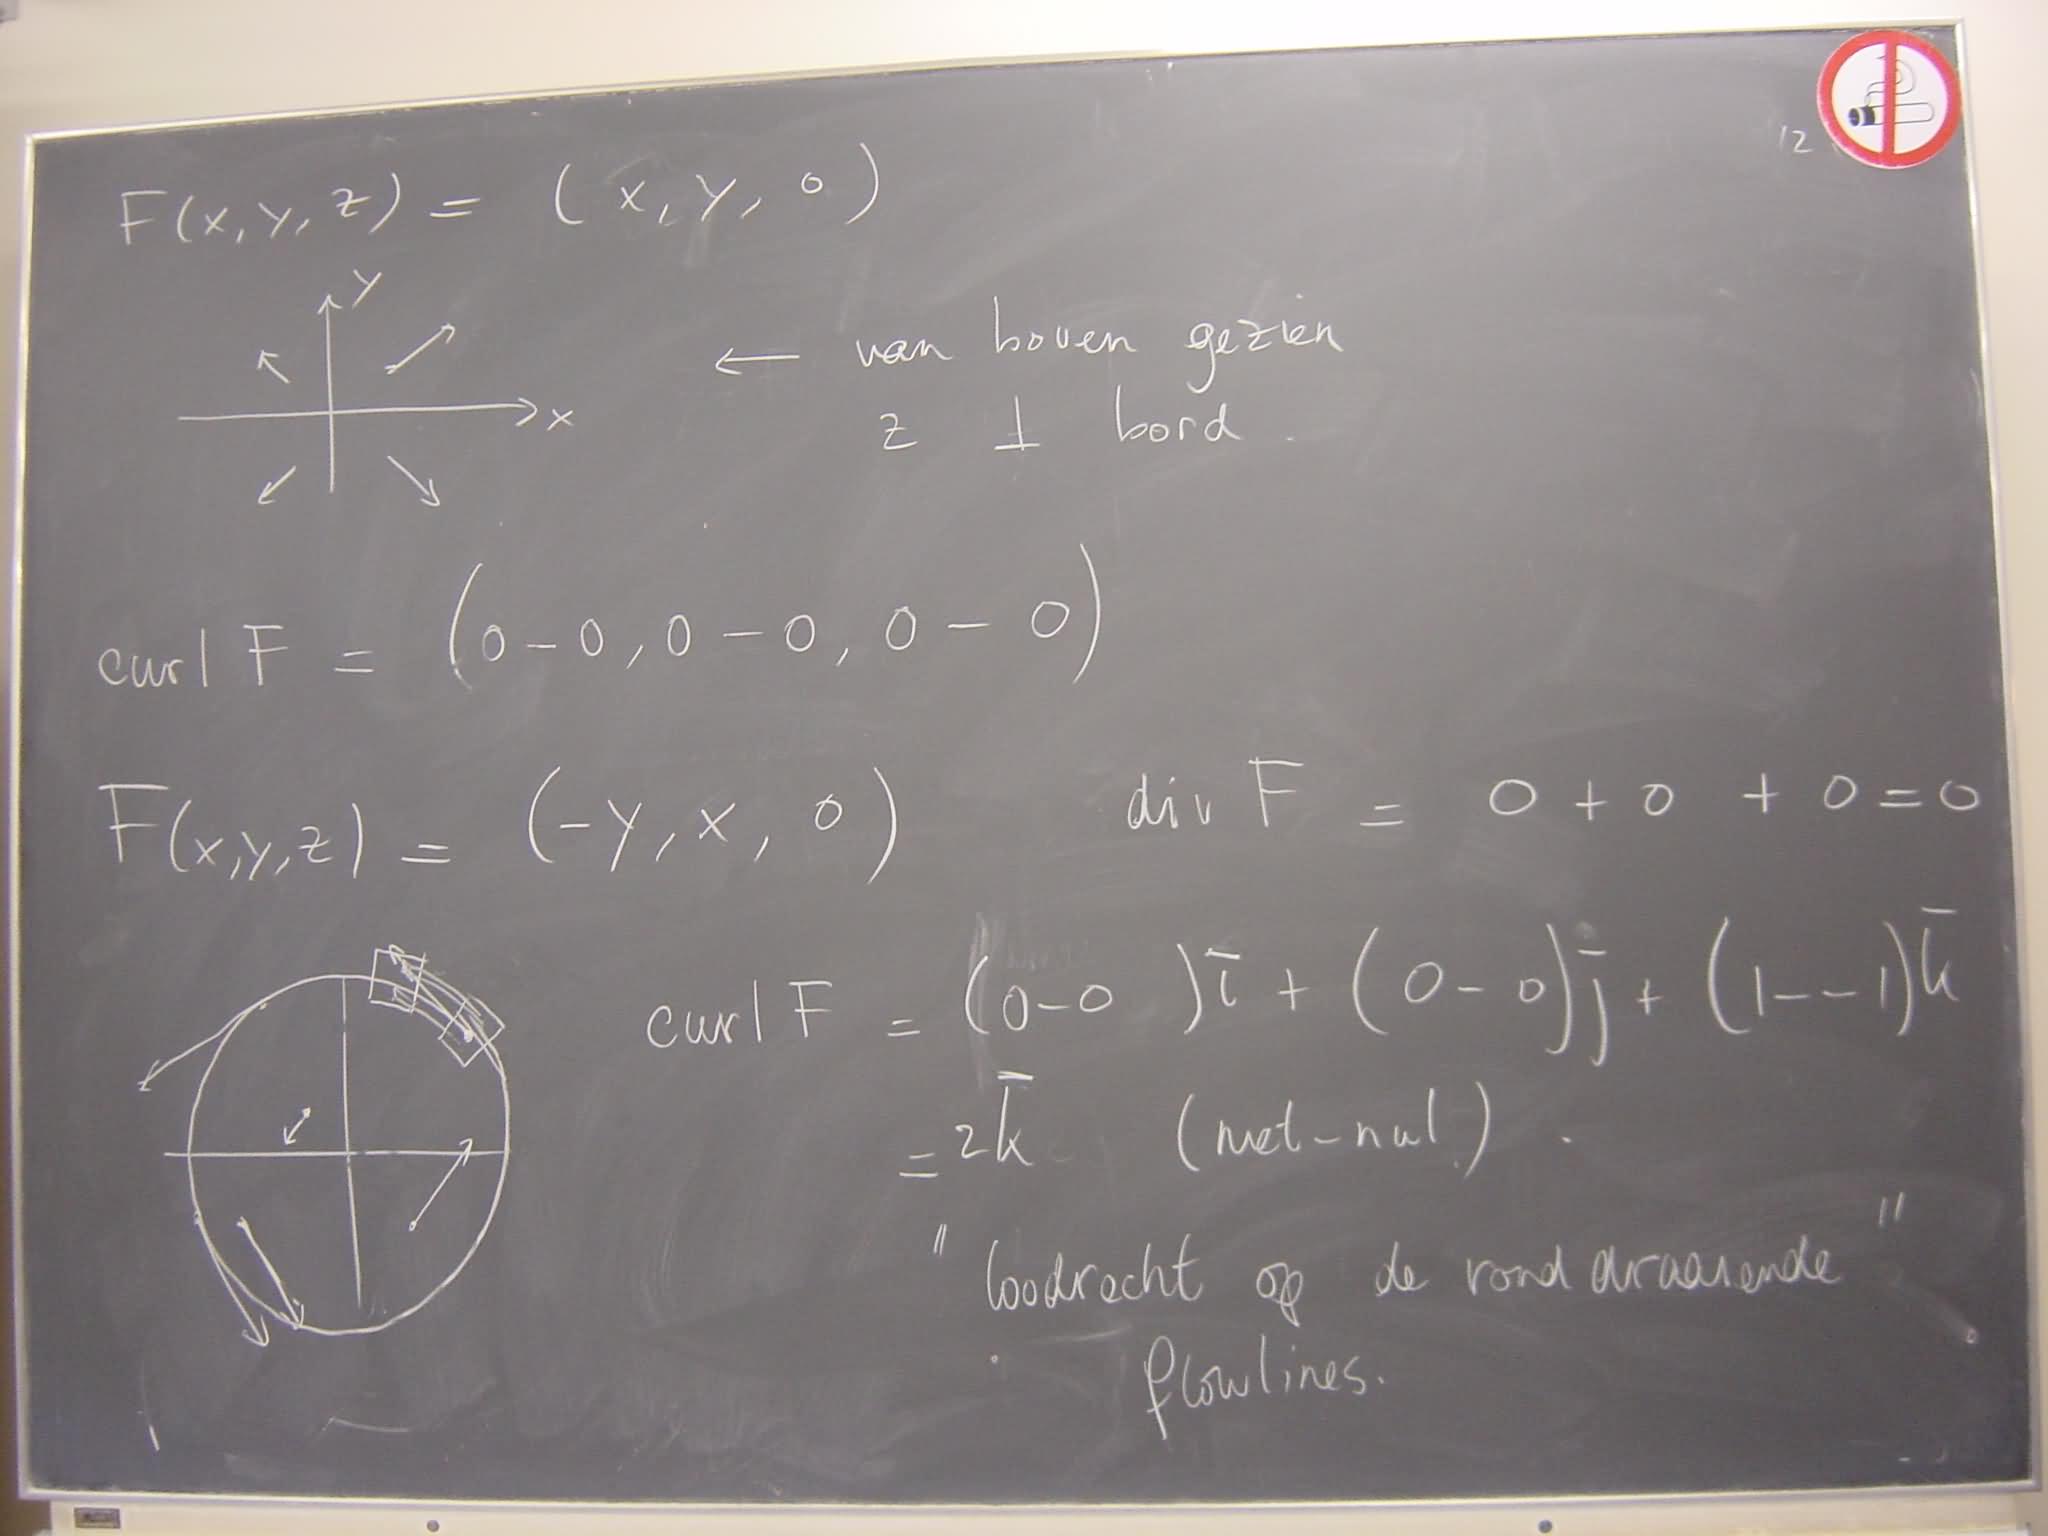 12
F(x,y,z) = (x,y,0)
y
x
← van boven gezien
z ⊥ bord.
curl F = (0-0, 0-0, 0-0)
F(x,y,z) = (-y, x, 0)
div F = 0 + 0 + 0 = 0
curl F = (0-0) i̅ + (0-0) j̅ + (1--1) k̅
= 2k̅ (niet-nul).
"loodrecht op de ronddraaiende"
flowlines.